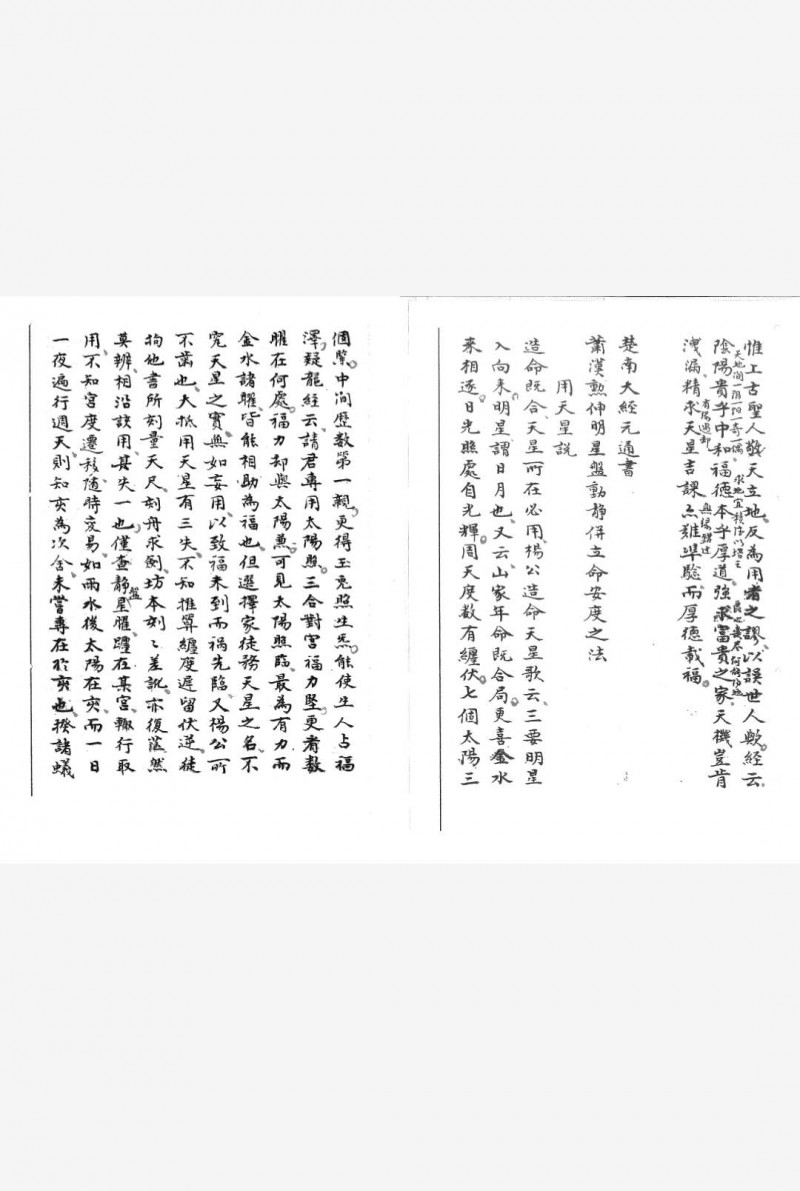 惟上古聖人敬天立地。反為用者之謬、以誤世人歟。經云。
天地間一陰一陽一奇一偶。
陰陽貴乎中和福德本乎厚道、強求富貴之家、天機豈肯
洩漏、精求天星吉課、亦難準驗。而厚德載福。
楚南大經元通書
蕭漢勲伸明星盤動靜併立命安度之法
用天星説
造命既合天星所在必用、楊公造命天星歌云、三要明星
入向來、明星謂日月也、又云、山家年命既合局、更喜金水
來相逐。日光照處自光輝。周天度数有纏伏。七個太陽三
個緊、中间歷数第一親。更得玉兎照生炁、能使生人占福
澤、疑龍經云、請君專用太陽照。三合對宮福力堅。更看数
曜在何處。福力却與太陽兼。可見太陽照臨、最為有力、而
金水諸曜、皆能相助為福也、但選擇家、徒務天星之名、不
究天星之實、與如妄用、以致福未到而禍先臨、又楊公所
不齒也、大抵用天星有三失、不知推算纏度遲留伏逆、徒
拘他書所刻量天尺、刻舟求劍、坊本刻刻差訛、亦復茫然
莫辨、相沿誤用、其失一也、僅查靜盤星曜躔在某宮、輙行取
用、不知宮度遷移、随時变易、如雨水後太陽在亥、而一日
一夜遍行週天、則知亥為次舍、未嘗專在於亥也、揆諸蟻